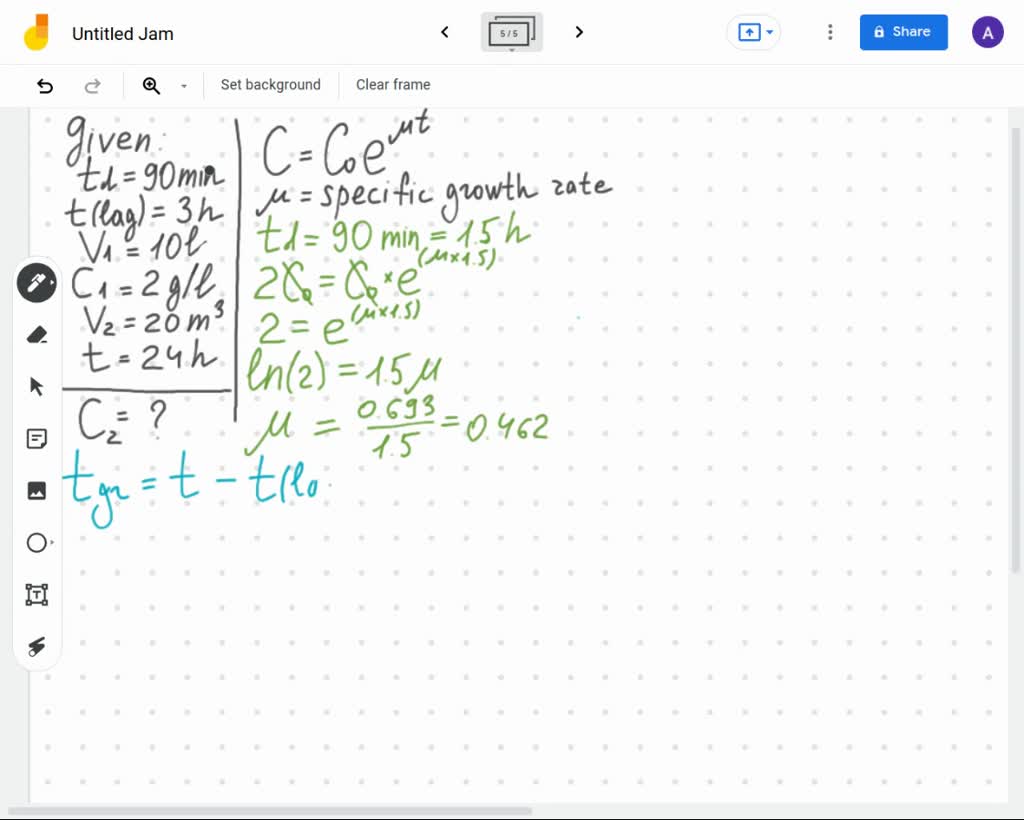 Untitled Jam
5 / 5
Share
A
Set background
Clear frame
given:
td = 90 min
t(lag) = 3h
V1 = 10l
C1 = 2 g/l
V2 = 20 m³
t = 24h
C2 = ?
C = C0e^μt
μ = specific growth rate
td = 90 min = 1.5 h
2C0 = C0 × e^(μ×1.5)
2 = e^(μ×1.5)
ln(2) = 1.5 μ
μ = 0.693/1.5 = 0.462
tgr = t - t(la